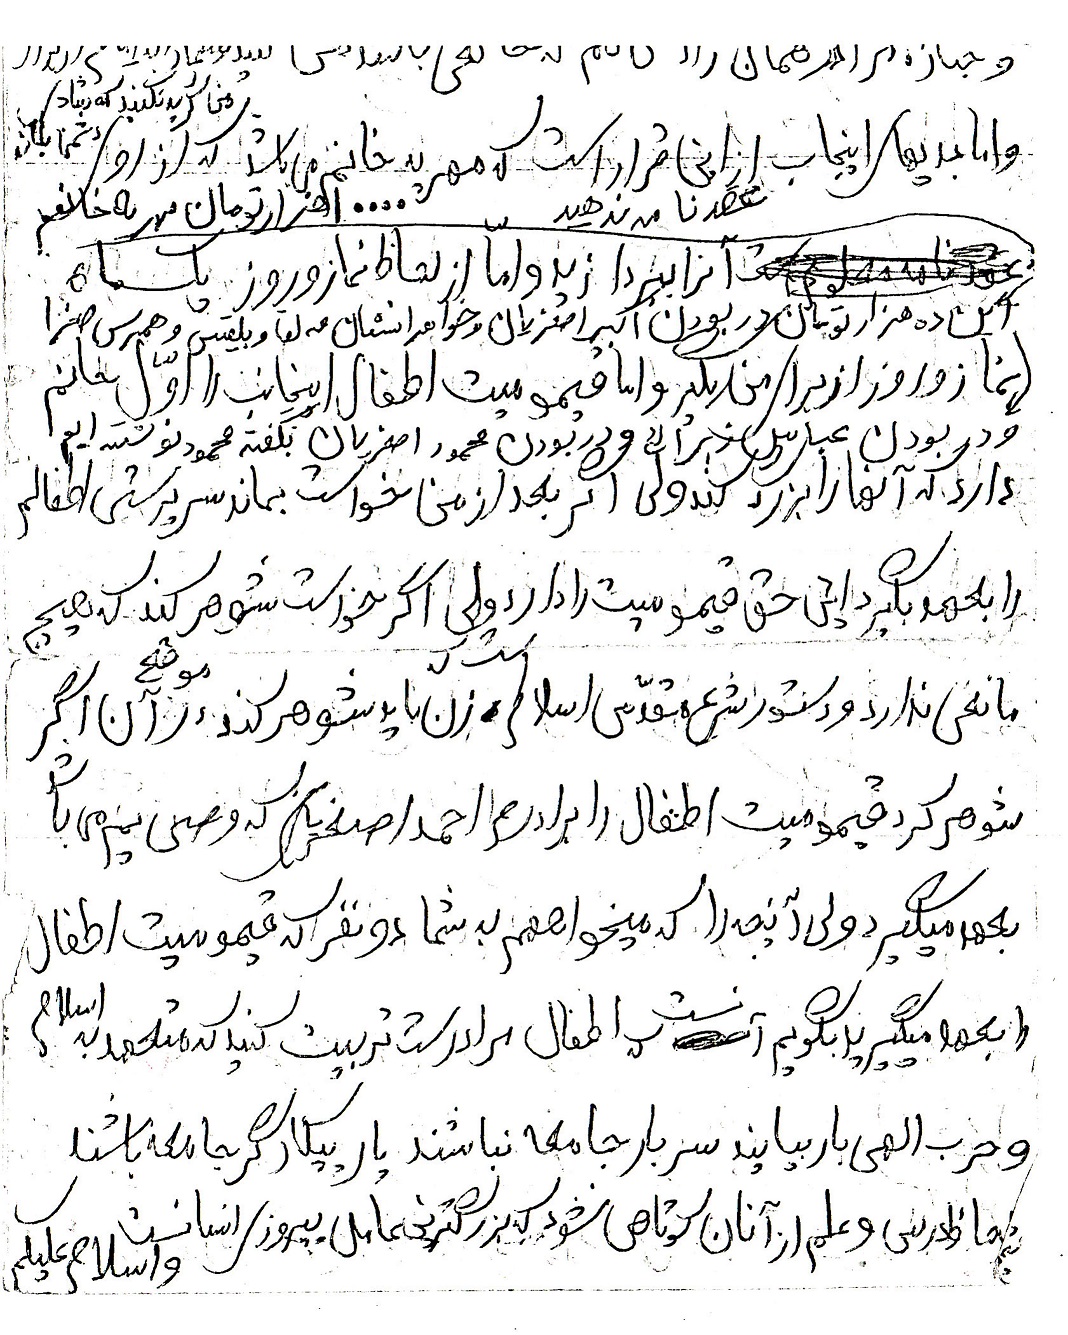 و جنازه مرا همان
من گریه نکنید که دشاد
دشمنا باشد
و اما بدیهای اینجانب از این قرار است که مهریه خانم می باشد که از او
عقدنامه ندهید
۱۰ هزار تومان مهریه خانم
آنرا بپردازید و اما از لحاظ نماز و روز یک ماه
این ده هزار تومان در بودن اکبر اصغریان و خواهرانشان مه لقا و بلقیس و همسرش صغرا
نماز و روز از برای من بگیر و اما قیمومیت اطفال اینجانب را اول خانم
و در بودن عباس و در بودن محمود اصغریان بگفته محمود نوشته ایم
دارد که آنها را بزرگ کند ولی اگر بعد از من خواست بماند سرپرستی اطفالم
را بعهده بگیرد این حق قیمومیت را دارد ولی اگر خواست شوهر کند که هیچ
مانعی ندارد و دستور شرع مقدس اسلام است که زن باید شوهر کند در آن موقع اگر
شوهر کرد قیمومیت اطفال را برادرم احمد اصغریان که وصی نیز می باشد
بعهده میگیرد ولی آنچه را که میخواهم به شما دو نفر که قیمومیت اطفال
را بعهده میگیرید بگویم آنست که اطفال مرا درست تربیت کنید که متعهد به اسلام
و حزب الهی بار بیایند سربار جامعه نباشند یار پیکارگر جامعه باشند
لحاظ درس و علم از آنان کوتاهی نشود که بزرگترین عامل پیروزی انسانست
والسلام علیکم